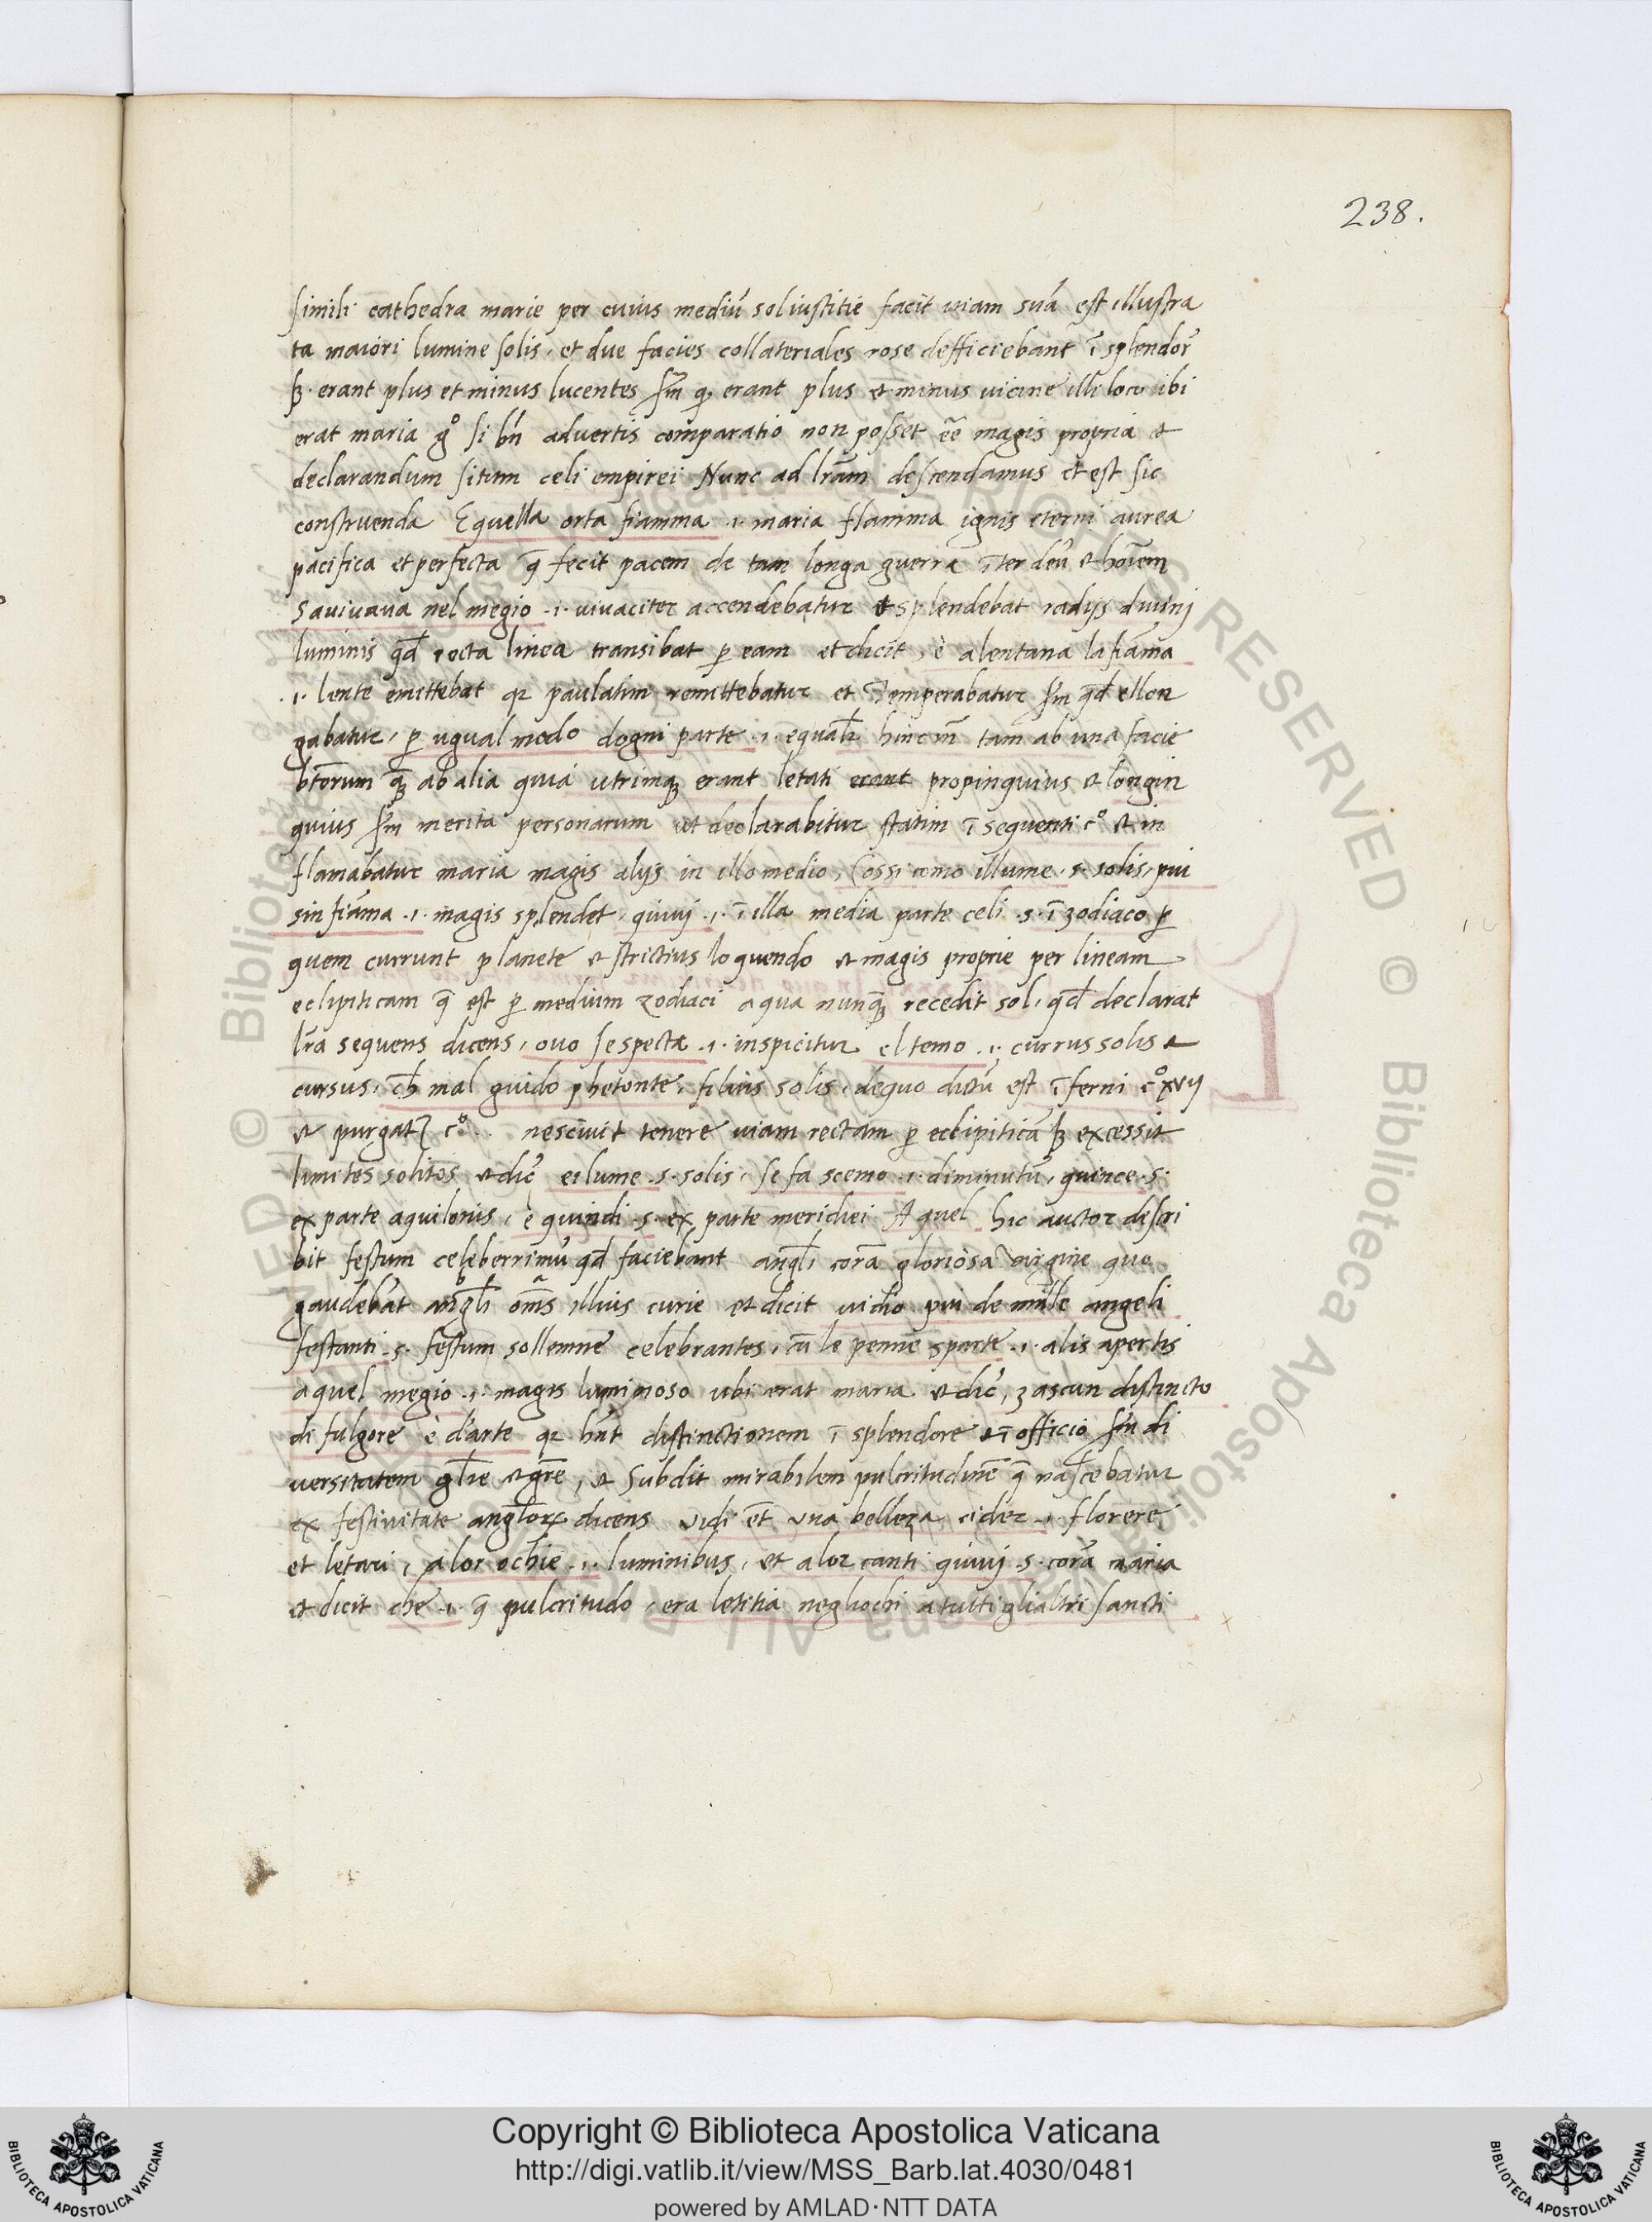 238.
simili cathedra marie per cuius mediũ sol iustitie facit uiam suã est illustra
ta maiori lumine solis, et due facies collaterales rose defficiebant ĩ splendor̃
sʒ erant plus et minus lucentes sm̃ ꝙ erant plus et minus uicine illi loco ibi
erat maria gº si bñ advertis comparatio non posset eẽ magis propria et
declarandum situm celi empirei Nunc ad lr̃am descendamus et est sic
construenda Equella orta fiamma .i. maria flamma ignis eterni aurea
pacifica et perfecta q̃ fecit pacem de tam longa guerra ĩter deũ et hoĩem
savivava nel megio .i. vivaciter accendebatur et splendebat radijs diuinj
luminis qđ recta linea transibat ꝑ eam et dicit, è alentana la fiãma
.i. lente emittebat qr paulatim remittebatur et temperabatur sm̃ qđ ellon
gabatur, ꝑ ugual modo dogni parte .i. equalr̃ hinc m̃ tam ab una facie
bt̃orum qʒ̃ ab alia quia utrimqʒ erant letati erant propinquius et longin
quius sm̃ merita personarum ut declarabitur statim ĩ sequenti cº et in
flamabatur maria magis alijs in illo medio, Cossi como illume .s. solis, piu
sin fiãma .i. magis splendet, quiuj .i. ĩ illa media parte celi .s. ĩ zodiaco ꝑ
quem currunt planete et strictius loquendo et magis proprie per lineam
eclipiticam q̃ est ꝑ medium zodiaci a qua nunqʒ̃ recedit sol, qđ declarat
lr̃a sequens dicens, ouo se specta .i. inspicitur el temo .i. currus solis et
cursus, ch̃ mal guido phetonte, filius solis, de quo dictũ est ĩferni cº xvij
et purgatʒ cº .. nesciuit tenere uiam rectam ꝑ eclipiticã sʒ excessit
limites solitos et dic̃ ei lume .s. solis, se fa scemo .i. diminutũ, quince .s.
ex parte aquilonis, è quindi .s. ex parte meridiei A quel hic auctor descri
bit festum celeberrimũ qđ faciebant angl̃i corã gloriosa virgine qua
gaudebãt angl̃i om̃s illius curie et dicit vidio piu de mille angeli
festanti .s. festum sollemne celebrantes, cũ le penne sparte .i. alis apertis
a quel megio .i. magis luminoso ubi erat maria et dic̃, zascun distincto
di fulgore è d'arte qr hñt distinctionem ĩ splendore et ĩ officio sm̃ di
uersitatem gl̃ie et gr̃e, et Subdit mirabilem pulcritudinẽ q̃ nascebatur
ex festiuitate angl̃oꝝ dicens vidi et̃ una belleza rider .i. florere
et letari, a lor ochie .i. luminibus, et a lor canti quiuij .s. corã maria
et dicit che .i. q̃ pulcritudo, era letitia negliochi a tutti glialtri sancti
Copyright © Biblioteca Apostolica Vaticana
http://digi.vatlib.it/view/MSS_Barb.lat.4030/0481
powered by AMLAD·NTT DATA